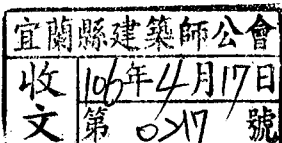 宜蘭縣建築師公會
收文
106年4月17日
第0217號